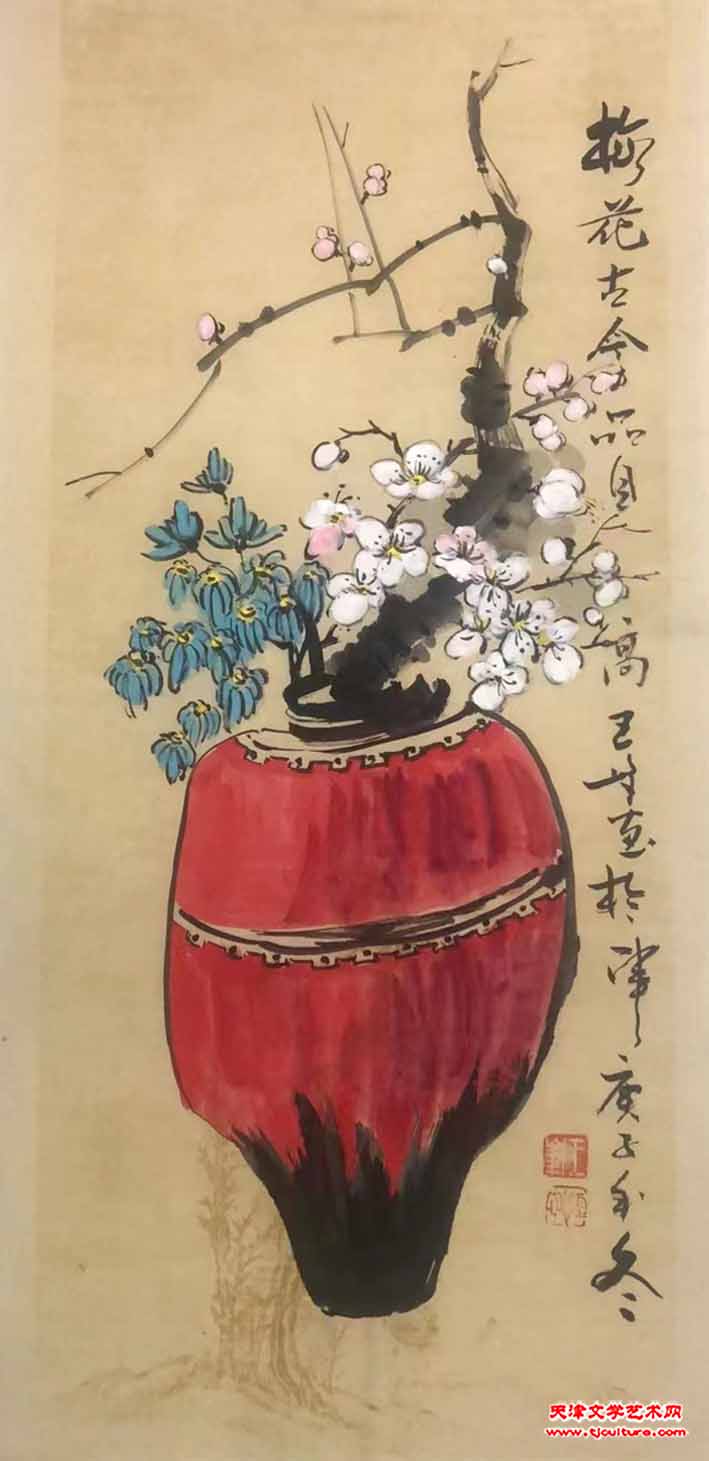 梅花古今品自高 王奇画於津 庚子年冬
天津文学艺术网
www.tjculture.com